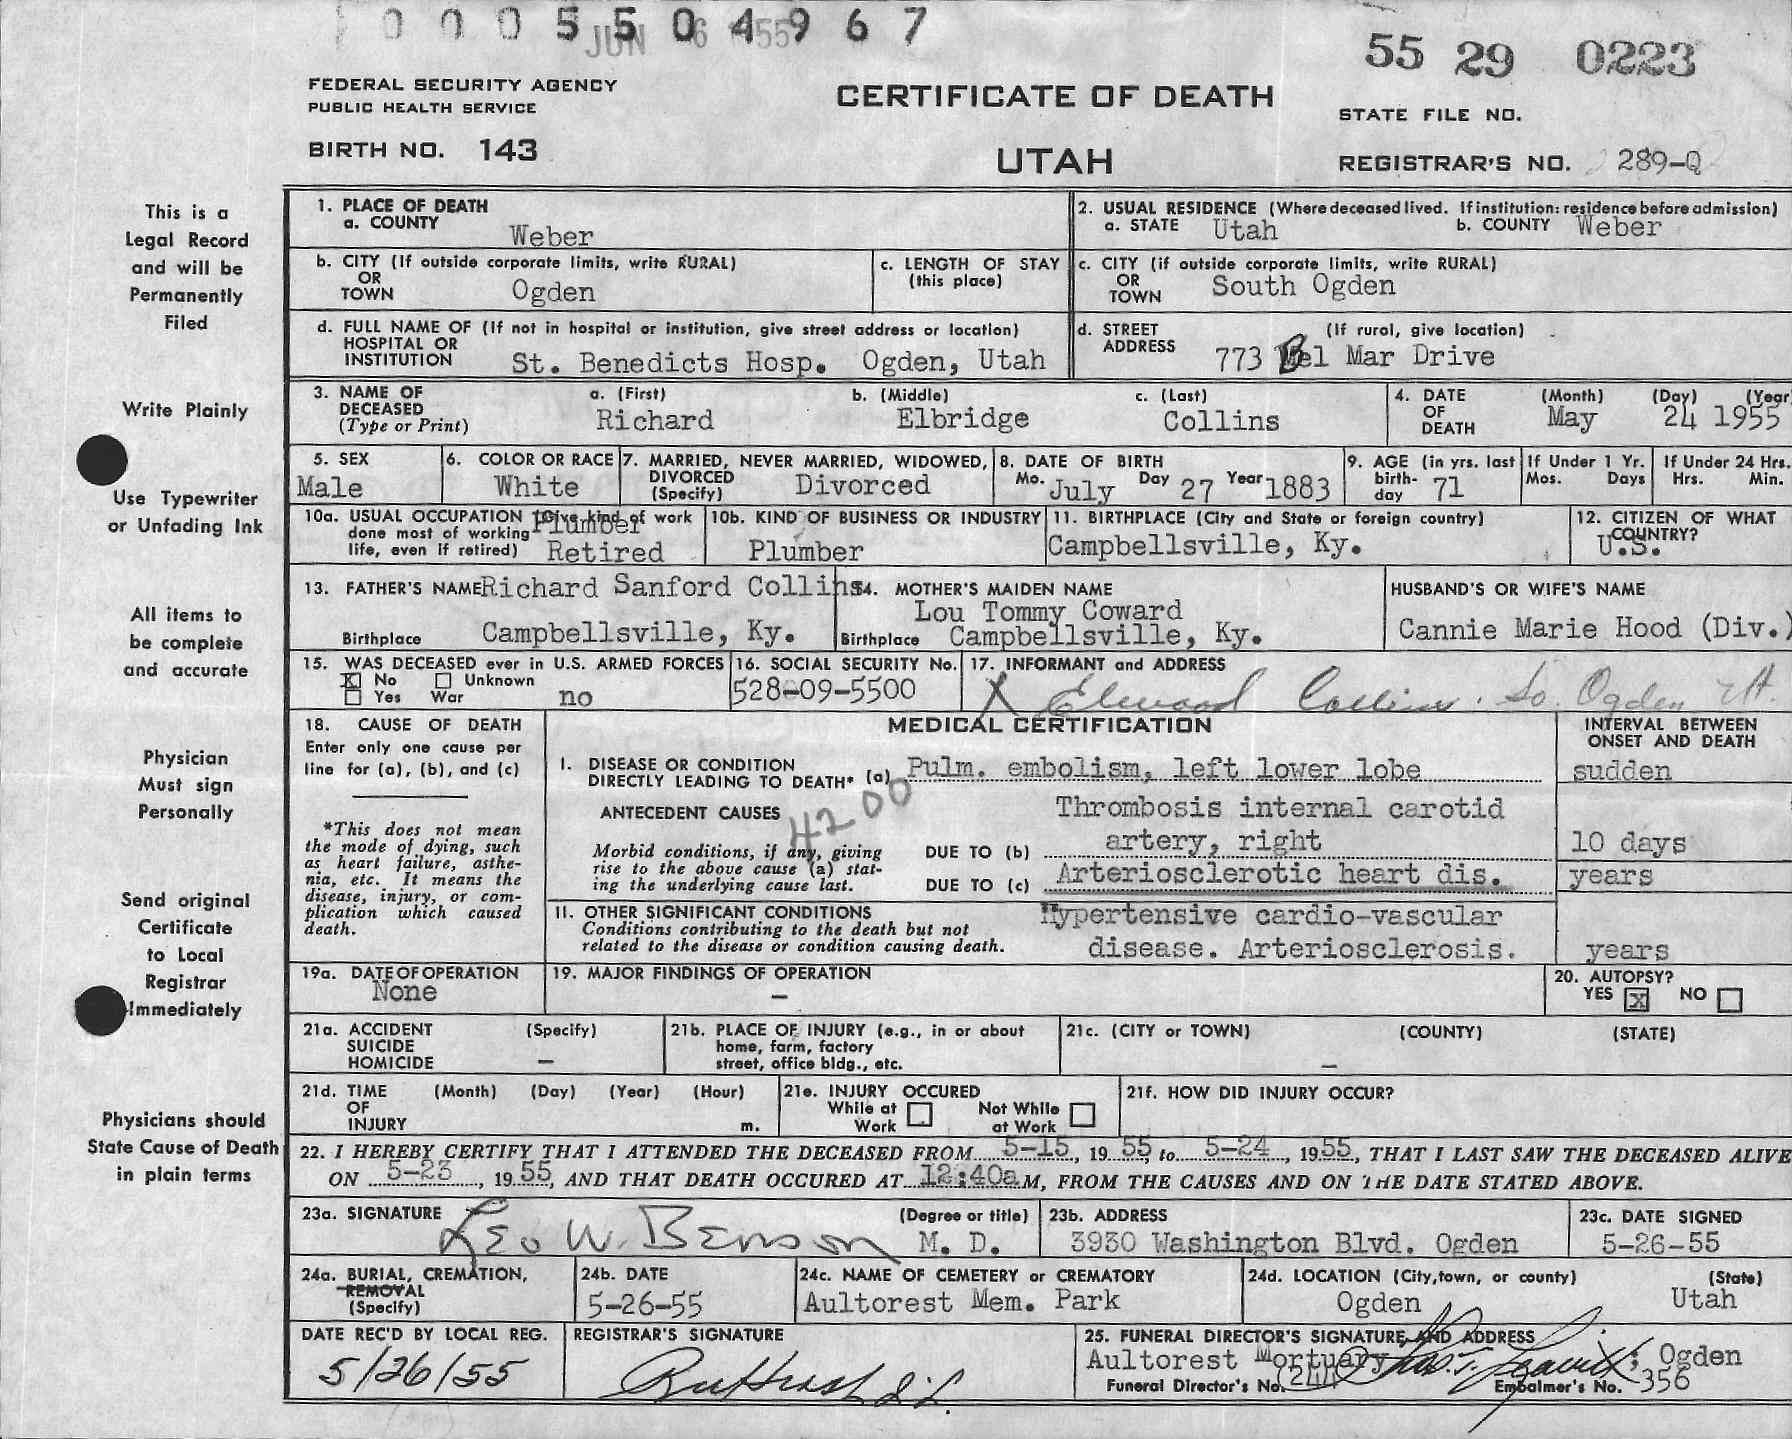 0005504967
JUN 6 55
55 29 0223
FEDERAL SECURITY AGENCY
PUBLIC HEALTH SERVICE
CERTIFICATE OF DEATH
STATE FILE NO.
BIRTH NO. 143
UTAH
REGISTRAR'S NO. 289-Q
This is a
Legal Record
and will be
Permanently
Filed
Write Plainly
Use Typewriter
or Unfading Ink
All items to
be complete
and accurate
Physician
Must sign
Personally
Send original
Certificate
to Local
Registrar
Immediately
Physicians should
State Cause of Death
in plain terms
1. PLACE OF DEATH
a. COUNTY Weber
2. USUAL RESIDENCE (Where deceased lived. If institution: residence before admission)
a. STATE Utah b. COUNTY Weber
b. CITY (If outside corporate limits, write RURAL)
OR
TOWN Ogden
c. LENGTH OF STAY
(this place)
c. CITY (if outside corporate limits, write RURAL)
OR
TOWN South Ogden
d. FULL NAME OF (If not in hospital or institution, give street address or location)
HOSPITAL OR
INSTITUTION St. Benedicts Hosp. Ogden, Utah
d. STREET (If rural, give location)
ADDRESS 773 Bel Mar Drive
3. NAME OF
DECEASED
(Type or Print)
a. (First) b. (Middle) c. (Last)
Richard Elbridge Collins
4. DATE
OF
DEATH
(Month) (Day) (Year
May 24 1955
5. SEX
Male
6. COLOR OR RACE
White
7. MARRIED, NEVER MARRIED, WIDOWED,
DIVORCED
(Specify) Divorced
8. DATE OF BIRTH
Mo. July Day 27 Year 1883
9. AGE (in yrs. last
birth-
day 71
If Under 1 Yr.
Mos. Days
If Under 24 Hrs.
Hrs. Min.
10a. USUAL OCCUPATION (Give kind of work
done most of working
life, even if retired)
Plumber
Retired
10b. KIND OF BUSINESS OR INDUSTRY
Plumber
11. BIRTHPLACE (City and State or foreign country)
Campbellsville, Ky.
12. CITIZEN OF WHAT
COUNTRY?
U.S.
13. FATHER'S NAME Richard Sanford Collins
Birthplace Campbellsville, Ky.
14. MOTHER'S MAIDEN NAME
Lou Tommy Coward
Birthplace Campbellsville, Ky.
HUSBAND'S OR WIFE'S NAME
Cannie Marie Hood (Div.)
15. WAS DECEASED ever in U.S. ARMED FORCES
X No Unknown
Yes War no
16. SOCIAL SECURITY No.
528-09-5500
17. INFORMANT and ADDRESS
X Elwood Collins. So. Ogden Ut.
18. CAUSE OF DEATH
Enter only one cause per
line for (a), (b), and (c)
*This does not mean
the mode of dying, such
as heart failure, asthe-
nia, etc. It means the
disease, injury, or com-
plication which caused
death.
MEDICAL CERTIFICATION
INTERVAL BETWEEN
ONSET AND DEATH
I. DISEASE OR CONDITION
DIRECTLY LEADING TO DEATH* (a) Pulm. embolism, left lower lobe sudden
4200
ANTECEDENT CAUSES
Morbid conditions, if any, giving
rise to the above cause (a) stat-
ing the underlying cause last.
Thrombosis internal carotid
DUE TO (b) artery, right 10 days
DUE TO (c) Arteriosclerotic heart dis. years
II. OTHER SIGNIFICANT CONDITIONS
Conditions contributing to the death but not
related to the disease or condition causing death.
Hypertensive cardio-vascular
disease. Arteriosclerosis. years
19a. DATE OF OPERATION
None
19. MAJOR FINDINGS OF OPERATION
-
20. AUTOPSY?
YES X NO
21a. ACCIDENT (Specify)
SUICIDE
HOMICIDE -
21b. PLACE OF INJURY (e.g., in or about
home, farm, factory
street, office bldg., etc.
21c. (CITY or TOWN) (COUNTY) (STATE)
-
21d. TIME (Month) (Day) (Year) (Hour)
OF
INJURY m.
21e. INJURY OCCURED
While at Work Not While at Work
21f. HOW DID INJURY OCCUR?
22. I HEREBY CERTIFY THAT I ATTENDED THE DECEASED FROM 5-15, 19 55 to 5-24, 19 55, THAT I LAST SAW THE DECEASED ALIVE
ON 5-23, 19 55, AND THAT DEATH OCCURED AT 12:40a M, FROM THE CAUSES AND ON THE DATE STATED ABOVE.
23a. SIGNATURE (Degree or title)
Leo W. Benson M. D.
23b. ADDRESS
3930 Washington Blvd. Ogden
23c. DATE SIGNED
5-26-55
24a. BURIAL, CREMATION,
REMOVAL
(Specify)
24b. DATE
5-26-55
24c. NAME OF CEMETERY or CREMATORY
Aultorest Mem. Park
24d. LOCATION (City, town, or county) (State)
Ogden Utah
DATE REC'D BY LOCAL REG.
5/26/55
REGISTRAR'S SIGNATURE
25. FUNERAL DIRECTOR'S SIGNATURE AND ADDRESS
Aultorest Mortuary ; Ogden
Funeral Director's No. 244 Embalmer's No. 356